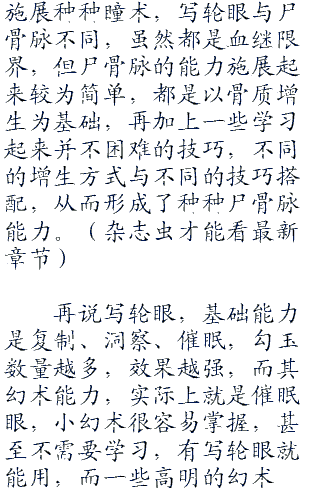 施展种种瞳术，写轮眼与尸
骨脉不同，虽然都是血继限
界，但尸骨脉的能力施展起
来较为简单，都是以骨质增
生为基础，再加上一些学习
起来并不困难的技巧，不同
的增生方式与不同的技巧搭
配，从而形成了种种尸骨脉
能力。（杂志虫才能看最新
章节）
再说写轮眼，基础能力
是复制、洞察、催眠，勾玉
数量越多，效果越强，而其
幻术能力，实际上就是催眠
眼，小幻术很容易掌握，甚
至不需要学习，有写轮眼就
能用，而一些高明的幻术